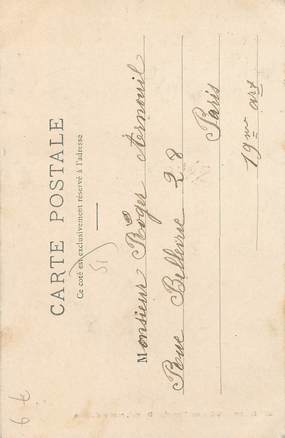 CARTE POSTALE
Ce coté est exclusivement réservé à l'adresse
51
Monsieur Roger Arnouil
Rue Bellevue 28
Paris
19me arr
6 €